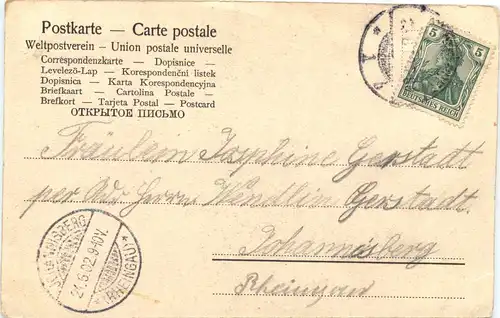 Postkarte — Carte postale
Weltpostverein – Union postale universelle
Correspondenzkarte — Dopisnice —
Levelező-Lap — Korespondenční listek
Dopisnica — Karta Korespondencyjna
Briefkaart — Cartolina Postale —
Brefkort — Tarjeta Postal — Postcard
ОТКРЫТОЕ ПИСЬМО
5 5
DEUTSCHES REICH
Fräulein Josephine Gerstadt
per Ad. Herrn Wendlin Gerstadt
Johannisberg
Rheingau
JOHANNISBERG
21.6.02.9-10V.
(RHEINGAU)